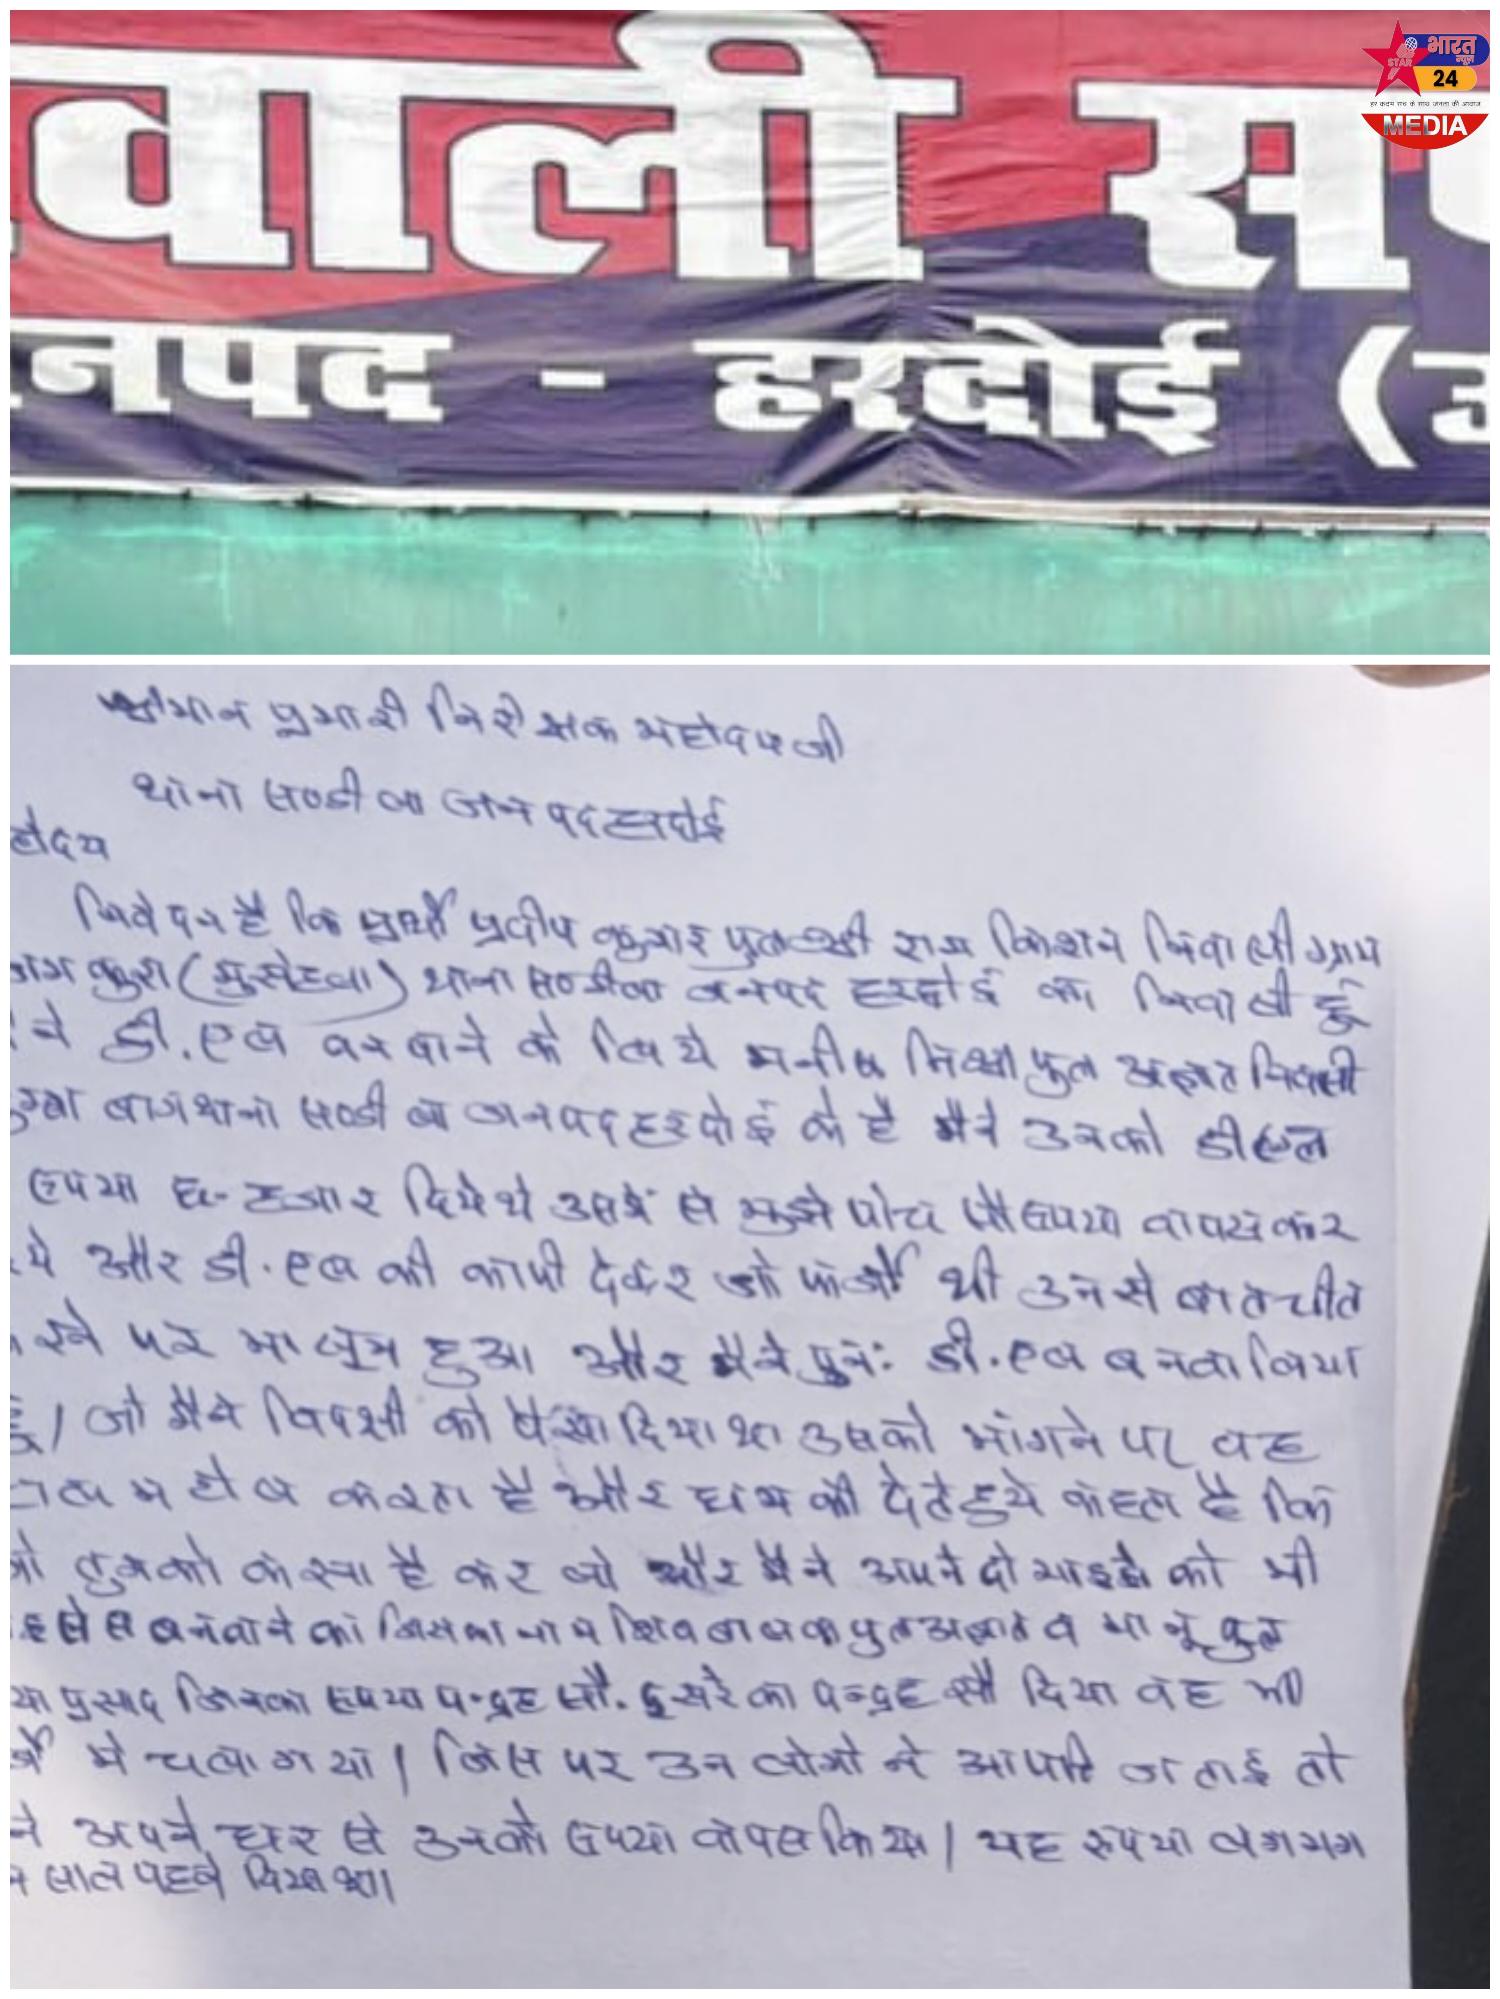 वाली स
नपद - हरदोई (उ
STAR भारत न्यूज़ 24
हर कदम सच के साथ जनता की आवाज
MEDIA
श्रीमान प्रभारी निरीक्षक महोदय जी
थाना सण्डीला जनपद हरदोई
होदय
निवेदन है कि प्रार्थी प्रदीप कुमार पुत्र श्री राम किशन निवासी ग्राम
(मुसेहवा) थाना सण्डीला जनपद हरदोई का निवासी हूँ
ने डी.एल बनवाने के लिये मनीष मिश्रा पुत्र अज्ञात निवासी
बाग थाना सण्डीला जनपद हरदोई के है मैने उनको डीएल
रुपया छः हजार दिये थे उसमें से मुझे पांच सौ रुपया वापस कर
ये और डी.एल की कापी देकर जो फर्जी थी उनसे बातचीत
रने पर मालूम हुआ और मैने पुनः डी.एल बनवा लिया
है/ जो मैने विपक्षी को पैसा दिया था उसको मांगने पर वह
करता है और धमकी देते हुये कहता है कि
जो तुमको करना है कर लो और मैने अपने दो भाइयों को भी
बनवाने का जिसका नाम शिव बालक पुत्र अज्ञात व भानू पुत्र
या प्रसाद जिनका रुपया पन्द्रह सौ. दूसरे का पन्द्रह सौ दिया वह भी
में चला गया/ जिस पर उन लोगो ने आपत्ति जताई तो
ने अपने घर से उनको रुपया वापस किया/ यह रुपया लगभग
साल पहले दिया था।